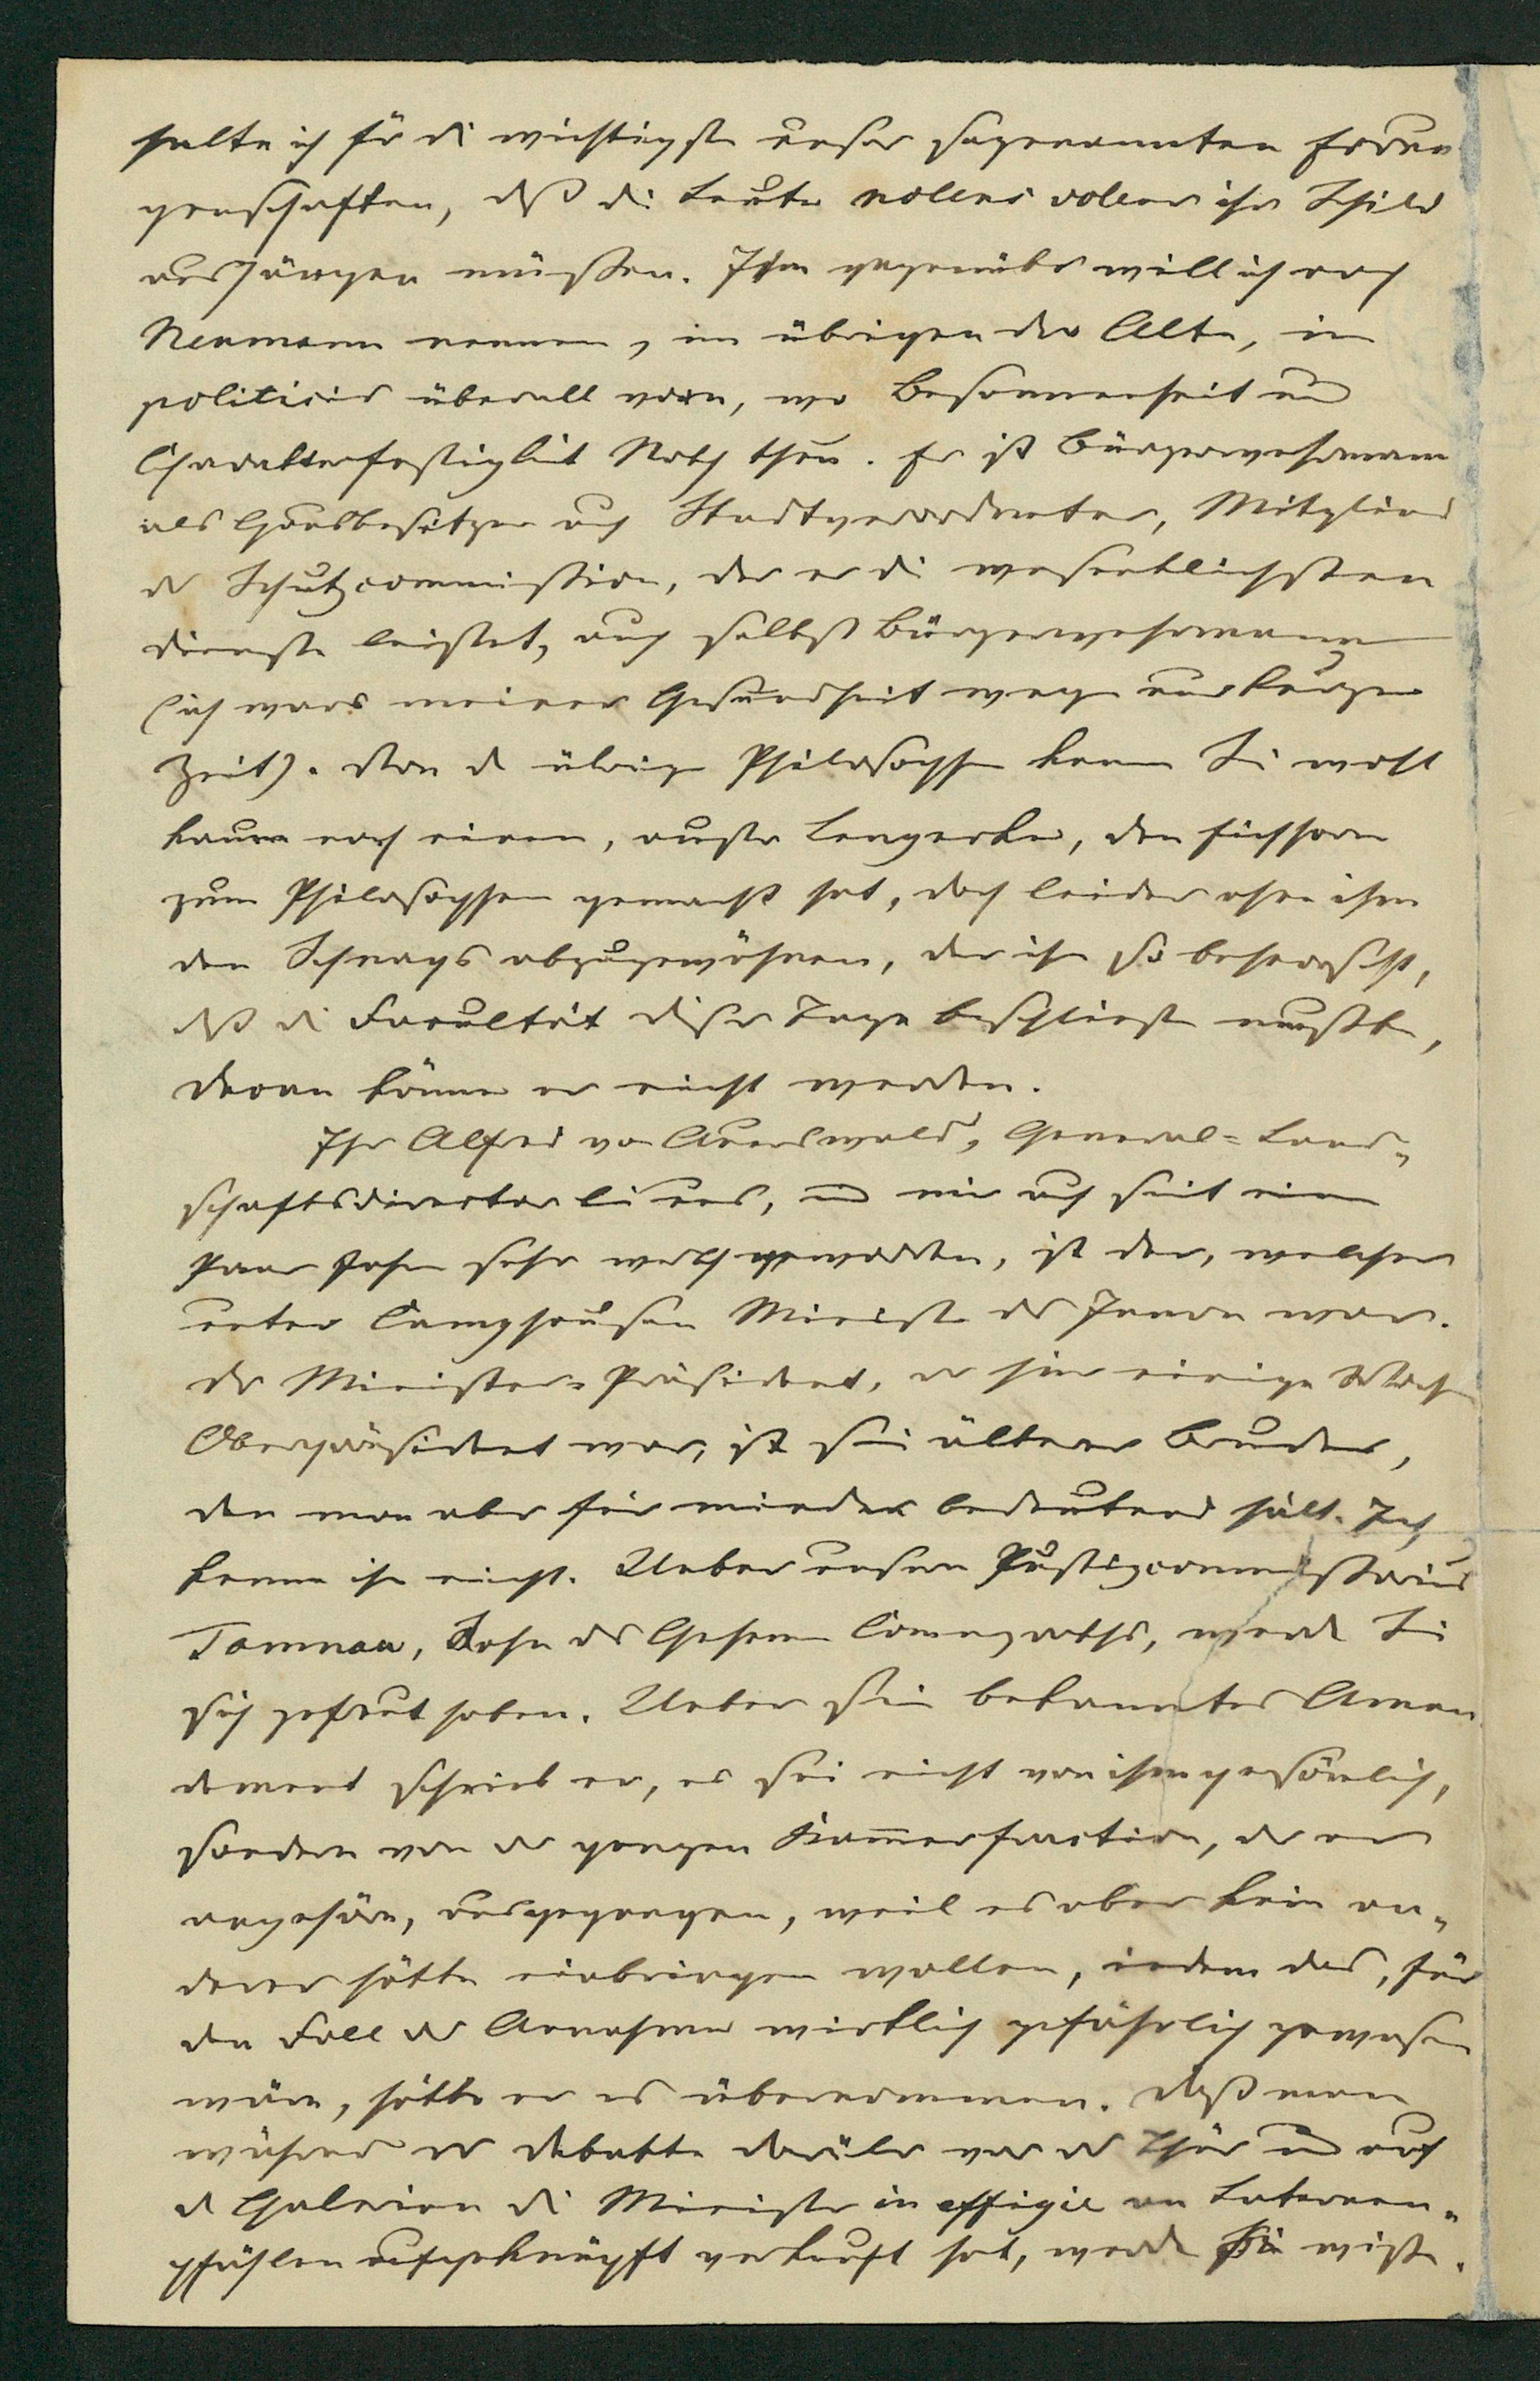 halte ich für die wichtigste unsrer sogenannten Errun
genschaften, daß die Leute nollens vollens ihr Schild
aushängen müssen. Ihm gegenüber will ich noch
Neumann nennen, im übrigen der Alte, in
politicis überall vorn, wo Besonnenheit und
Charakterfestigkeit Noth thun. Er ist Bürgerwehrmann
als Hausbesitzer auch Stadtverordneter, Mitglied
der Schutzcommission, der er die wesentlichsten
Dienste leistet, auch selbst Bürgerwehrmann
(ich wars meiner Gesundheit wegen nur kurze
Zeit). Von den übrigen Philosophen kennen Sie wohl
kaum noch einen, außer Lengerke, den Eichhorn
zum Philosophen gemacht hat, doch leider ohne ihm
den Schnaps abzugewöhnen, der ihn so beherrscht,
daß die Facultät dieser Tage beschließen mußte,
Decan könne er nicht werden.
Ihr Alfred von Auerswald, General-Land-
schaftsdirector bei uns, und mir auch seit einem
Paar Jahren sehr werth geworden, ist der, welcher
unter Camphausen Minister des Innern war.
Der Minister-Präsident, der hier einige Wochen
Oberpräsident war, ist sein älterer Bruder,
den man aber für minder bedeutend hält. Ich
kenne ihn nicht. Ueber unsern Justizcommissarius
Tamnau, Sohn des Geheimen Commerzraths, werden Sie
sich gefreut haben. Ueber sein bekanntes Amen
dement schrieb er, es sei nicht von ihm persönlich,
sondern von der ganzen Kammerfraction, der er
angehöre, ausgegangen, weil es aber kein an-
derer hätte einbringen wollen, indem das, für
den Fall der Annahme wirklich gefährlich gewesen
wäre, hätte er es übernommen. Daß man
während der Debatte darüber vor der Thür und auf
den Galerien die Minister in effigie an Laternen-
pfählen aufgeknüpft verkauft hat, werden Sie wissen.